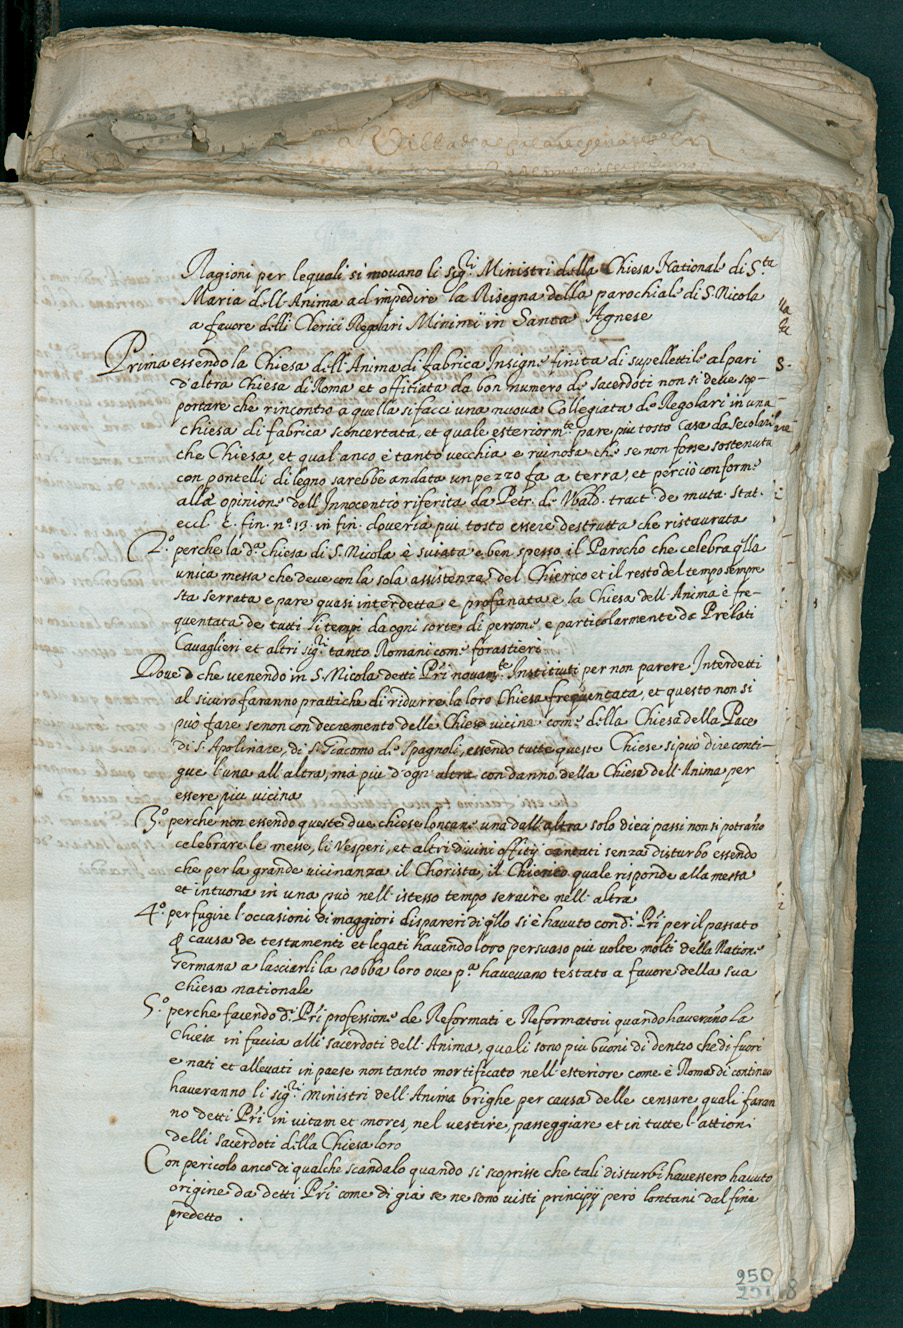 Ragioni per le quali si movano li sig.ri Ministri della Chiesa National di S.ta
Maria dell'Anima ad impedire la Risegna della parochiale di S. Nicola
a favore delli Clerici Regolari Minimi in Santa Agnese
Prima essendo la Chiesa dell'Anima di fabrica Insigne finita di supellettile al pari
d'altra Chiesa di Roma et offitiata da bon numero de sacerdoti non si deve sop-
portare che rincontro a quella si facci una nuova Collegiata de Regolari in una
chiesa di fabrica sconcertata, et quale esteriorm.te pare più tosto Casa da secolari
che Chiesa, et qual'anco è tanto vecchia e ruinosa che se non fosse sostenuta
con pontelli di legno sarebbe andata un pezzo fa a terra, et perciò conforme
alla opinione dell'Innocentio riferita da Petr. de Ubald. tract. de muta. stat.
eccl. c. fin. n.o 13. in fin. doveria più tosto essere destrutta che ristaurata
2.o perche la d.a chiesa di S. Nicola è suiata e ben spesso il Parocho che celebra q̃lla
unica messa che deve con la sola assistenza del Chierico et il resto del tempo sempre
sta serrata e pare quasi interdetta e profanata e la Chiesa dell'Anima è fre-
quentata de tutti li tempi da ogni sorte di persone e particolarmente de Prelati
Cavaglieri et altri sig.ri tanto Romani come forastieri
Dove che venendo in S. Nicola detti P̃ri novam.te Instituti per non parere Interdetti
al sicuro faranno prattiche di ridurre la loro Chiesa frequentata, et questo non si
può fare se non con decremento delle Chiese vicine come della Chiesa della Pace
di S. Apolinare, di S. Giacomo de Spagnoli, essendo tutte queste Chiese si può dire conti-
gue l'una all'altra, ma più d'ogn'altra con danno della Chiesa dell'Anima per
essere più vicina
3.o perche non essendo queste due chiese lontane una dall'altra solo dieci passi non si potrano
celebrare le messe, li Vesperi, et altri divini offitij cantati senza disturbo essendo
che per la grande vicinanza il Chorista, il Chierico quale risponde alla messa
et intuona in una può nell'istesso tempo servire nell'altra
4.o per fugire l'occasioni di maggiori dispareri di q̃llo si è havuto con d.i P̃ri per il passato
p causa de testamenti et legati havendo loro persuaso più volte molti della Natione
Germana a lasciarli la robba loro ove p.a havevano testato a favore della sua
chiesa nationale
5.o perche facendo d.i P̃ri professione de Reformati e Reformatori quando haverano la
Chiesa in faccia alli sacerdoti dell'Anima, quali sono più buoni di dentro che di fuori
e nati et allevati in paese non tanto mortificato nell'esteriore come è Roma di continuo
haveranno li sig.ri Ministri dell'Anima brighe per causa delle censure quali faran
no detti P̃ri in vitam et mores, nel vestire, passeggiare et in tutte l'attioni
delli sacerdoti della Chiesa loro
Con pericolo anco di qualche scandalo quando si scoprisse che tali disturbi havessero havuto
origine da detti P̃ri come di già se ne sono visti principij però lontani dal fine
predetto .
250